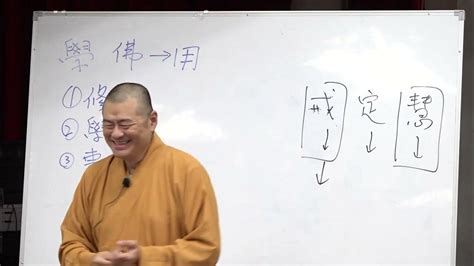 學 佛→用
①修
②學
③專
戒 定 慧